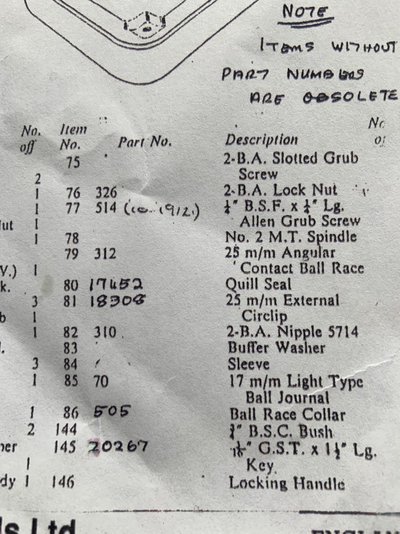 NOTE
ITEMS WITHOUT
PART NUMBERS
ARE OBSOLETE
No. Item
off No. Part No. Description
75 2-B.A. Slotted Grub
2 Screw
1 76 326 2-B.A. Lock Nut
1 77 514 ¼" B.S.F. x ¼" Lg.
1 Allen Grub Screw
78 No. 2 M.T. Spindle
79 312 25 m/m Angular
V.) 1 Contact Ball Race
k. 80 17452 Quill Seal
3 81 18308 25 m/m External
1 Circlip
1 82 310 2-B.A. Nipple 5714
83 Buffer Washer
3 84 Sleeve
1 85 70 17 m/m Light Type
Ball Journal
1 86 505 Ball Race Collar
2 144 ¾" B.S.C. Bush
145 20267 G.S.T. x 1½" Lg.
1 Key.
dy 1 146 Locking Handle
ls Ltd